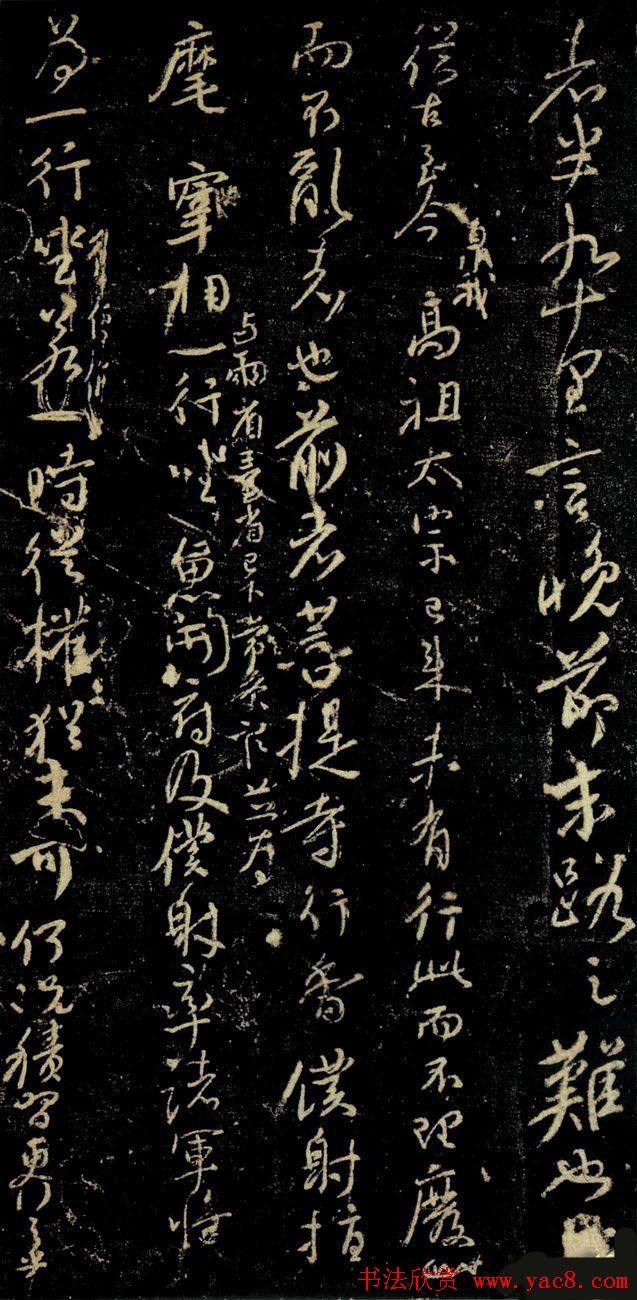 者半九十里言晚節末路之難也
從古至今臮我高祖太宗已來未有行此而不理廢
而不亂者也前者菩提寺行香僕射指
麾宰相與兩省臺省已下常參官並為一行坐魚開府及僕射率諸軍將
為一行坐若一時從權猶未可何況積習更行之乎
书法欣赏 www.yac8.com